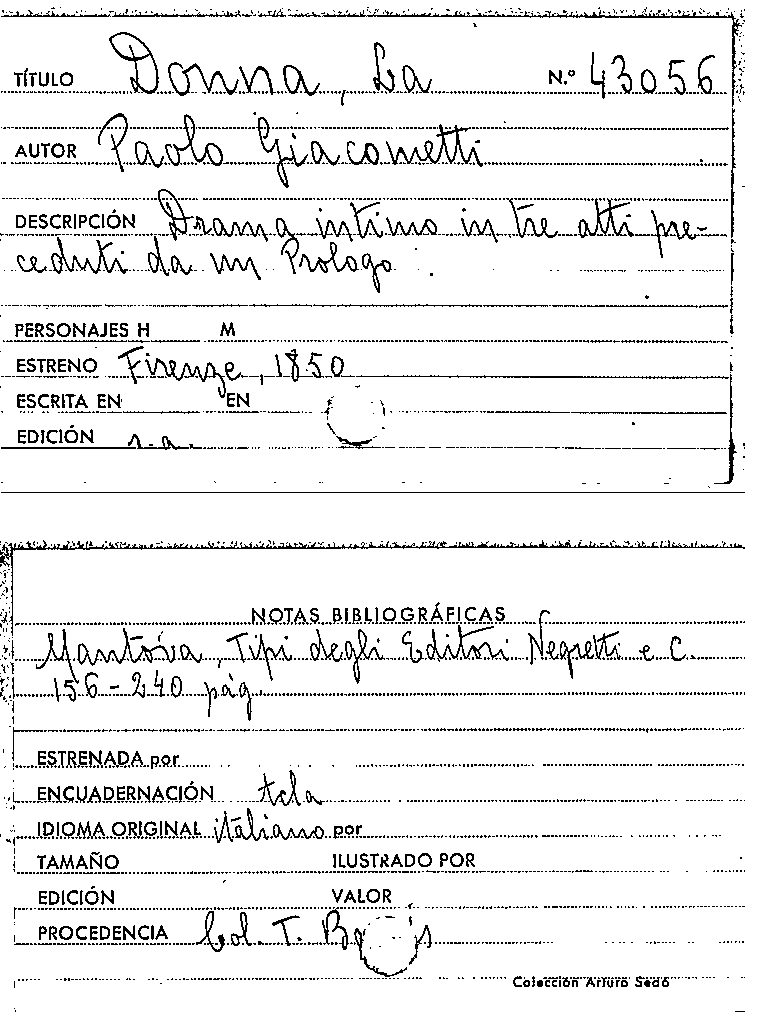 TÍTULO Donna, La N.º 43056
AUTOR Paolo Giacometti
DESCRIPCIÓN Drama intimo in tre atti pre-
ceduti da un Prologo.
PERSONAJES H M
ESTRENO Firenze, 1850
ESCRITA EN EN
EDICIÓN s.a.
NOTAS BIBLIOGRÁFICAS
Mantova, Tipi degli Editori Negretti e C.
156-240 pág.
ESTRENADA por
ENCUADERNACIÓN tela
IDIOMA ORIGINAL italiano por
TAMAÑO ILUSTRADO POR
EDICIÓN VALOR
PROCEDENCIA Col. T.
Colección Arturo Sedó